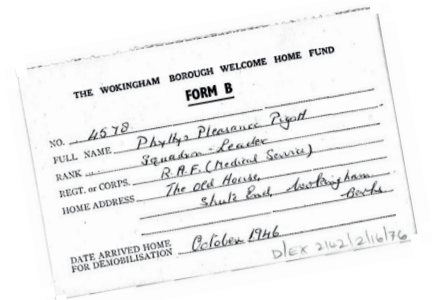 THE WOKINGHAM BOROUGH WELCOME HOME FUND
FORM B
NO. 4578
FULL NAME Phyllys Pleasance Pigott
RANK Squadron-Leader
REGT. or CORPS. R.A.F. (Medical Service)
HOME ADDRESS The Old House,
Shute End, Wokingham
Berks
DATE ARRIVED HOME
FOR DEMOBILISATION October 1946
D/EX 2162/2/16/76